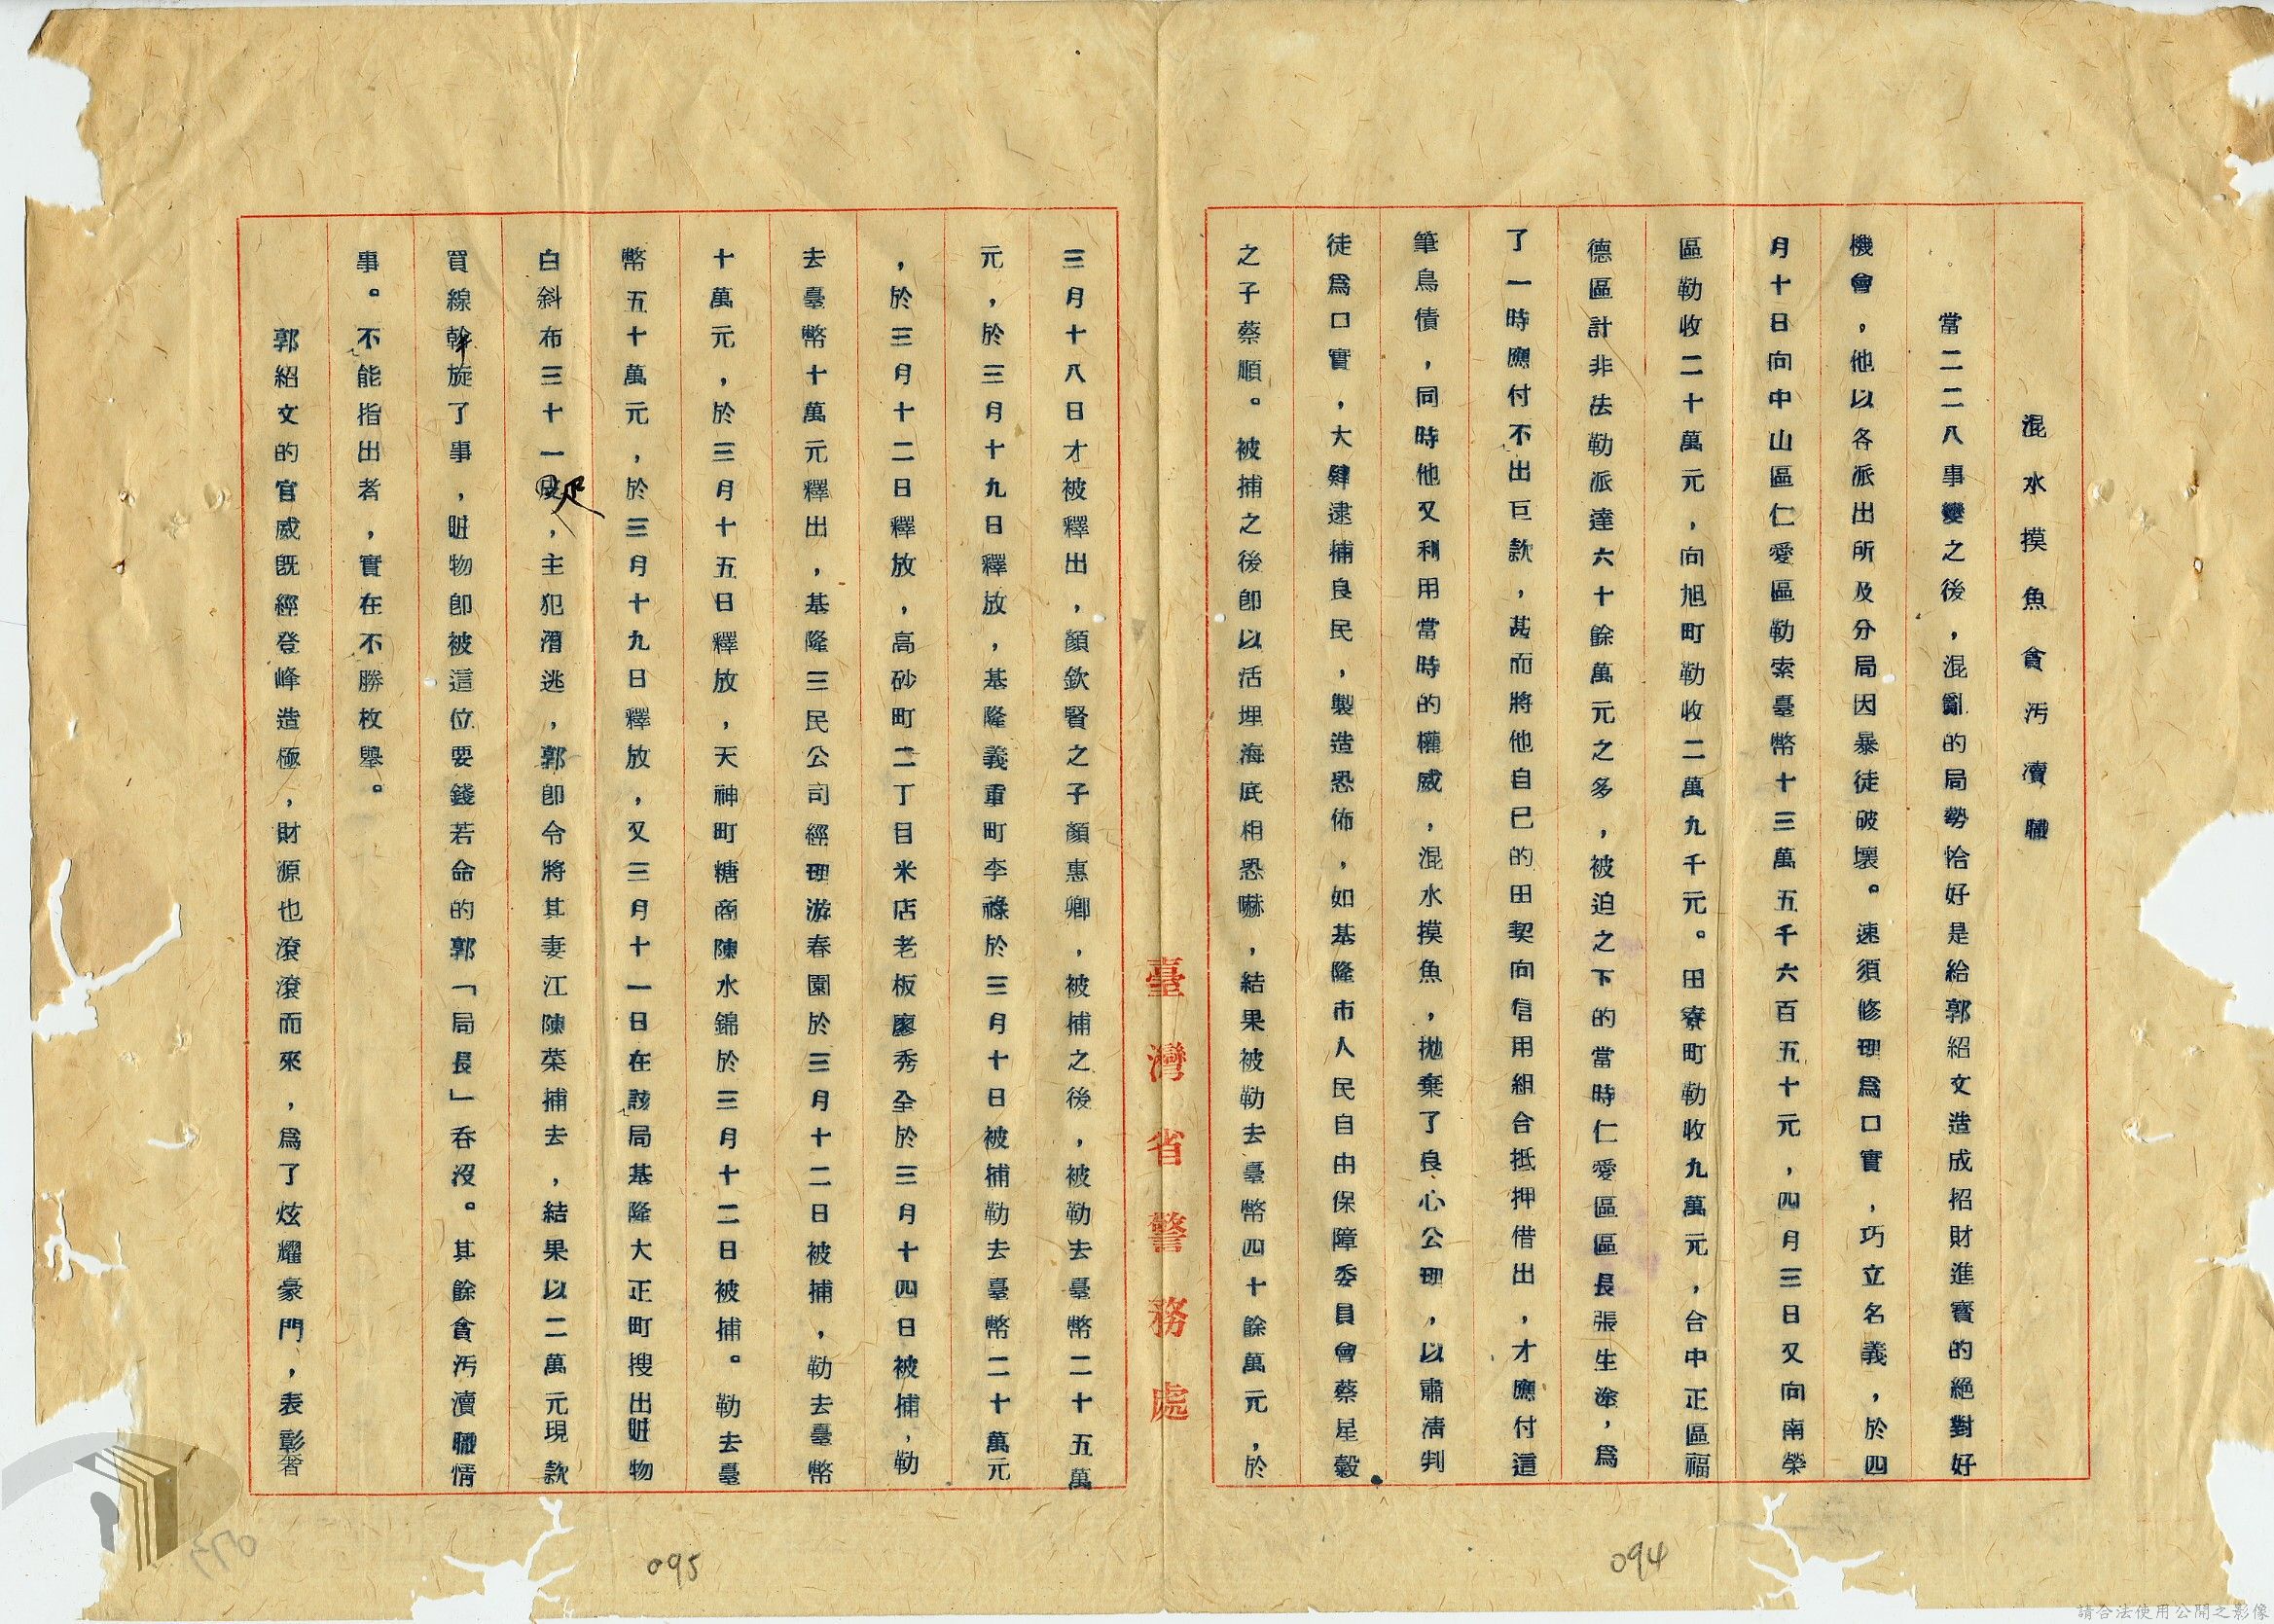 混水摸魚貪汚瀆職
當二二八事變之後，混亂的局勢恰好是給郭紹文造成招財進寶的絕對好
機會，他以各派出所及分局因暴徒破壞。速須修理爲口實，巧立名義，於四
月十日向中山區仁愛區勒索臺幣十三萬五千六百五十元，四月三日又向南榮
區勒收二十萬元，向旭町勒收二萬九千元。田寮町勒收九萬元，合中正區福
德區計非法勒派達六十餘萬元之多，被迫之下的當時仁愛區區長張生塗，爲
了一時應付不出巨款，甚而將他自已的田契向信用組合抵押借出，才應付這
筆鳥債，同時他又利用當時的權威，混水摸魚，拋棄了良心公理，以肅清判
徒爲口實，大肆逮捕良民，製造恐佈，如基隆市人民自由保障委員會蔡星穀
之子蔡順。被捕之後卽以活埋海底相恐嚇，結果被勒去臺幣四十餘萬元，於
臺灣省警務處
三月十八日才被釋出，顏欽賢之子顏惠卿，被捕之後，被勒去臺幣二十五萬
元，於三月十九日釋放，基隆義重町李祿於三月十日被捕勒去臺幣二十萬元
，於三月十二日釋放，高砂町二丁目米店老板廖秀全於三月十四日被捕，勒
去臺幣十萬元釋出，基隆三民公司經理游春園於三月十二日被捕，勒去臺幣
十萬元，於三月十五日釋放，天神町糖商陳水錦於三月十二日被捕。勒去臺
幣五十萬元，於三月十九日釋放，又三月十一日在該局基隆大正町搜出賍物
白斜布三十一尺，主犯滑逃，郭卽令將其妻江陳菜捕去，結果以二萬元現款
買線斡旋了事，賍物卽被這位要錢若命的郭「局長」吞沒。其餘貪汚瀆職情
事。不能指出者，實在不勝枚舉。
郭紹文的官威旣經登峰造極，財源也滾滾而來，爲了炫耀豪門，表彰
094
095
073
請合法使用公開之影像